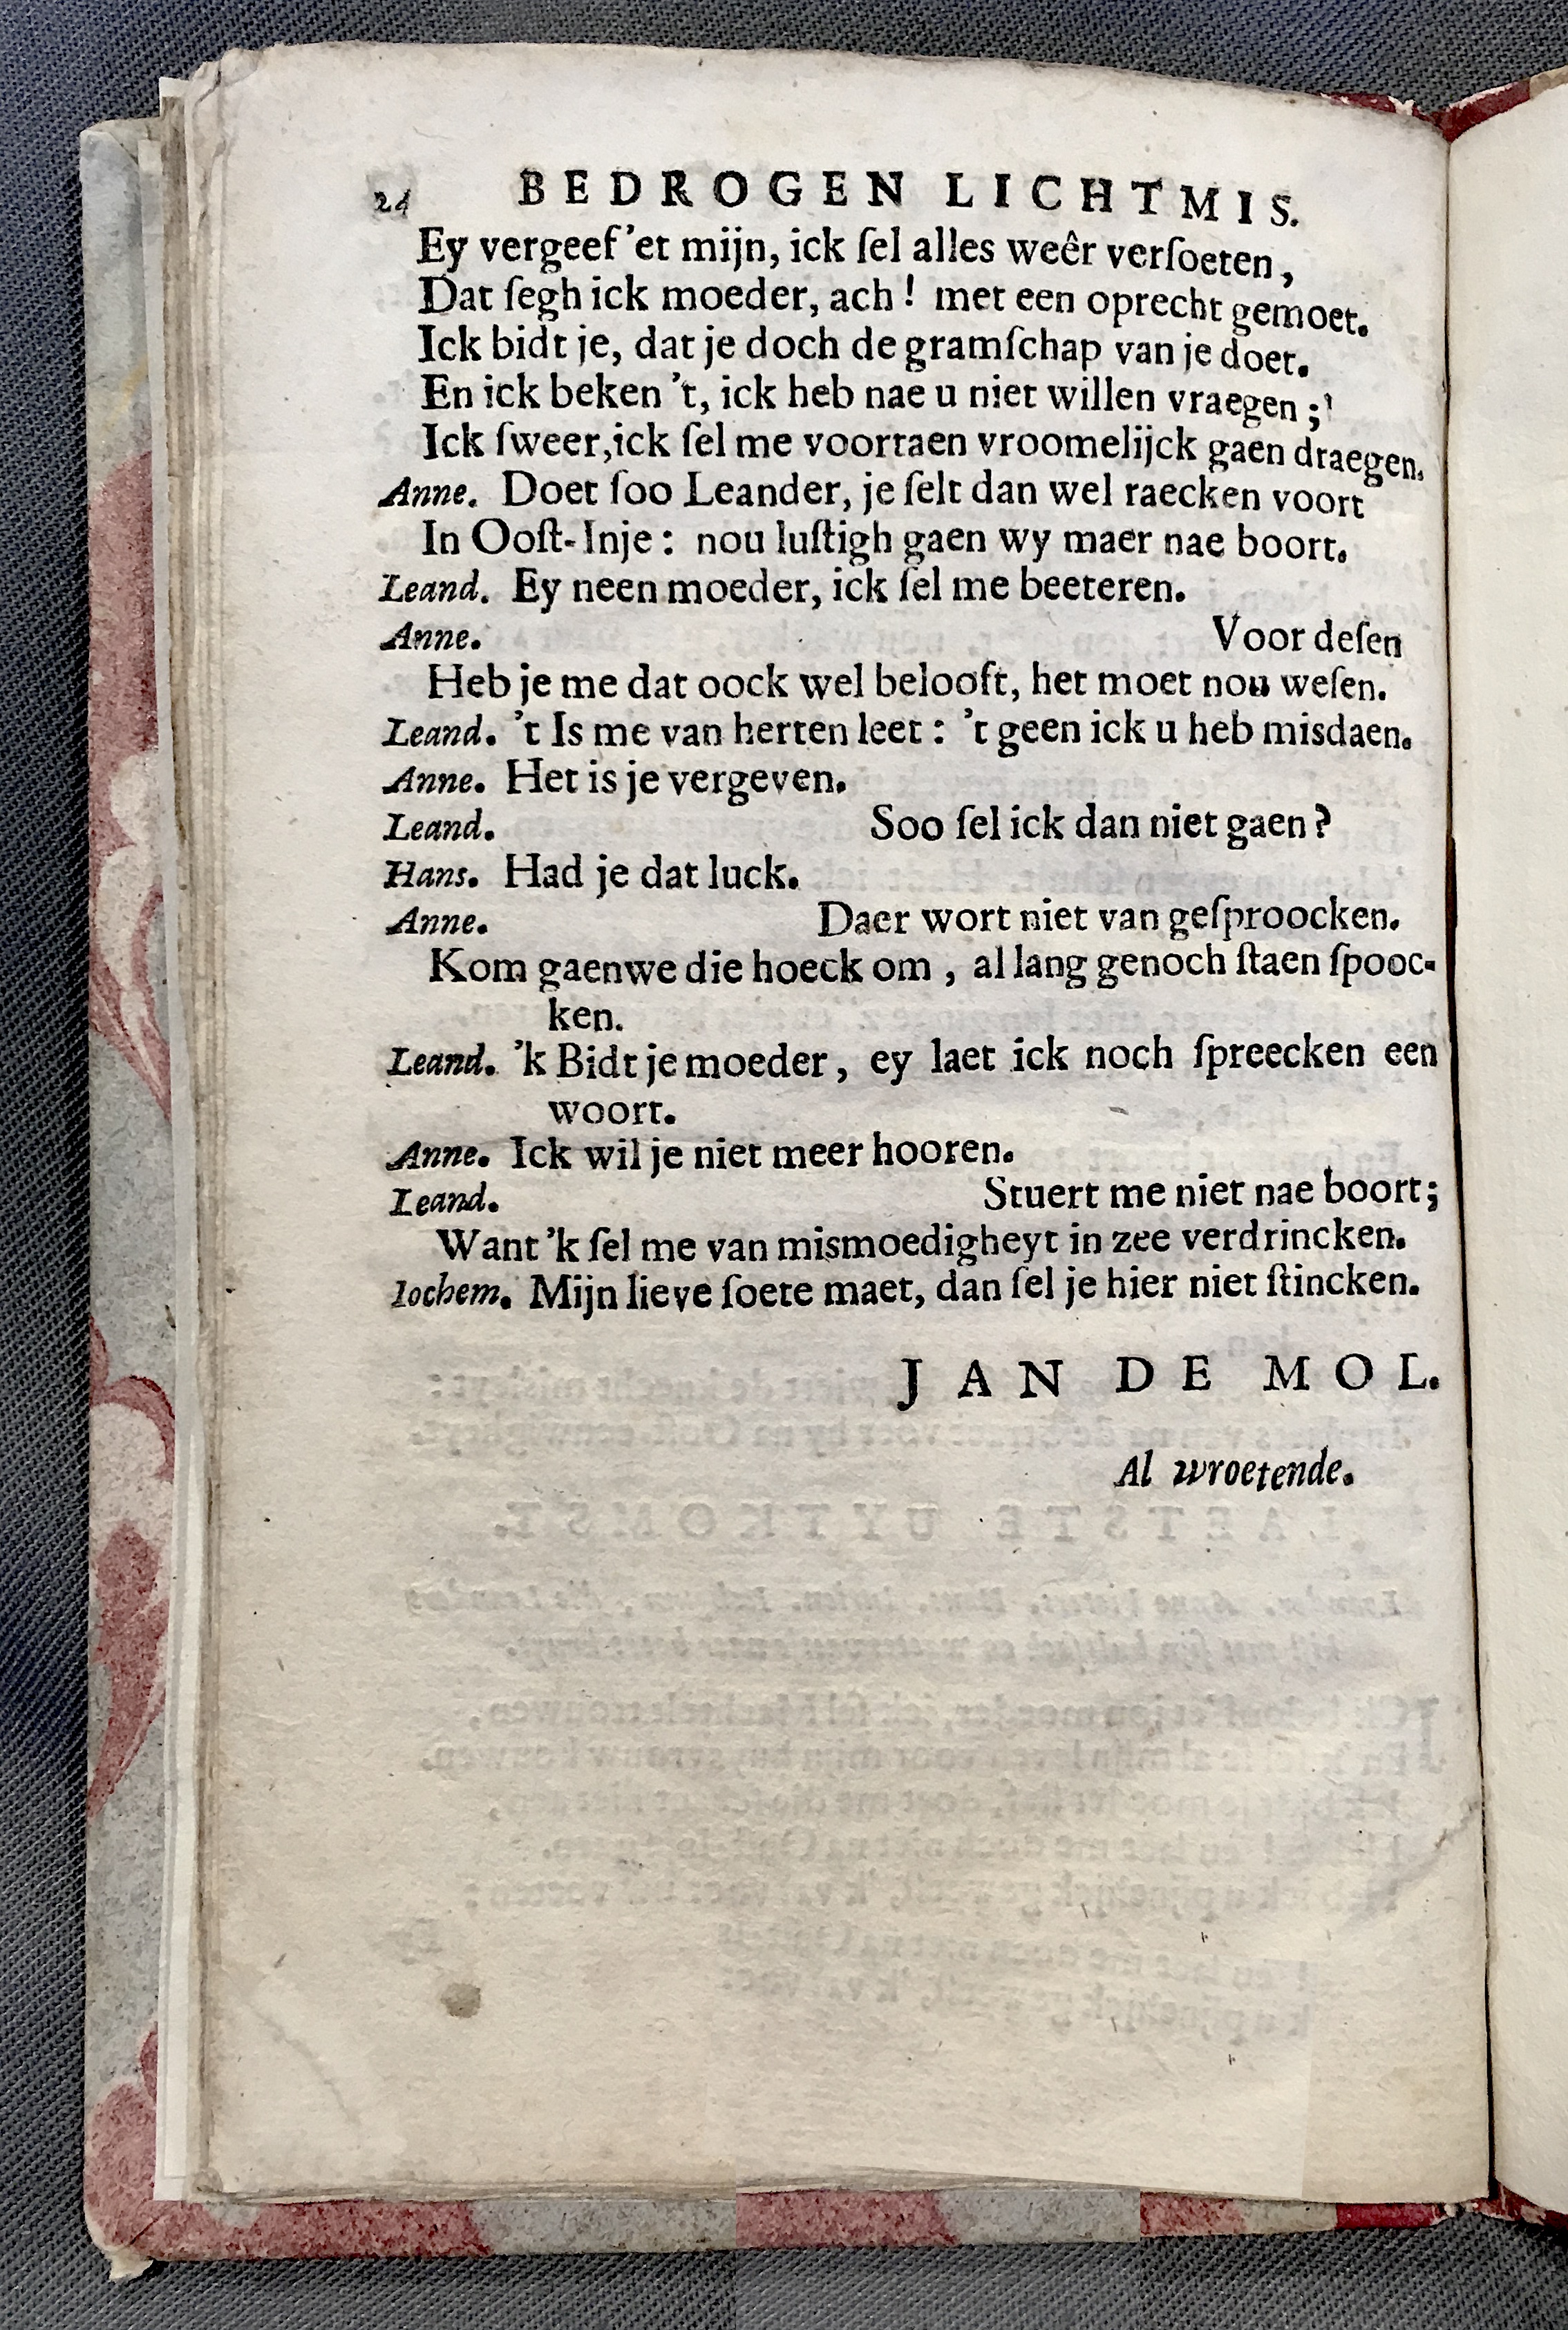 24 BEDROGEN LICHTMIS.
Ey vergeef 'et mijn, ick ſel alles weêr verſoeten,
Dat ſegh ick moeder, ach! met een oprecht gemoet.
Ick bidt je, dat je doch de gramſchap van je doet.
En ick beken 't, ick heb nae u niet willen vraegen;
Ick ſweer, ick ſel me voortaen vroomelijck gaen draegen.
Anne. Doet ſoo Leander, je ſelt dan wel raecken voort
In Ooſt-Inje: nou luſtigh gaen wy maer nae boort.
Leand. Ey neen moeder, ick ſel me beeteren.
Anne. Voor deſen
Heb je me dat oock wel belooft, het moet nou weſen.
Leand. 't Is me van herten leet: 't geen ick u heb misdaen.
Anne. Het is je vergeven.
Leand. Soo ſel ick dan niet gaen?
Hans. Had je dat luck.
Anne. Daer wort niet van geſproocken.
Kom gaenwe die hoeck om, al lang genoch ſtaen ſpooc-
ken.
Leand. 'k Bidt je moeder, ey laet ick noch ſpreecken een
woort.
Anne. Ick wil je niet meer hooren.
Leand. Stuert me niet nae boort;
Want 'k ſel me van mismoedigheyt in zee verdrincken.
Iochem. Mijn lieve ſoete maet, dan ſel je hier niet ſtincken.
JAN DE MOL.
Al wroetende.